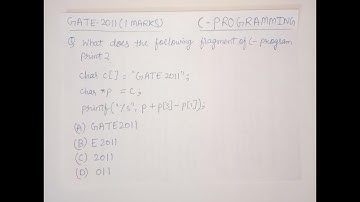 GATE-2011 (1 MARKS) C-PROGRAMMING
Q What does the following fragment of C-program
print?
char c[] = "GATE2011";
char *p = c;
printf("%s", p+p[3]-p[1]);
(A) GATE2011
(B) E2011
(C) 2011
(D) 011